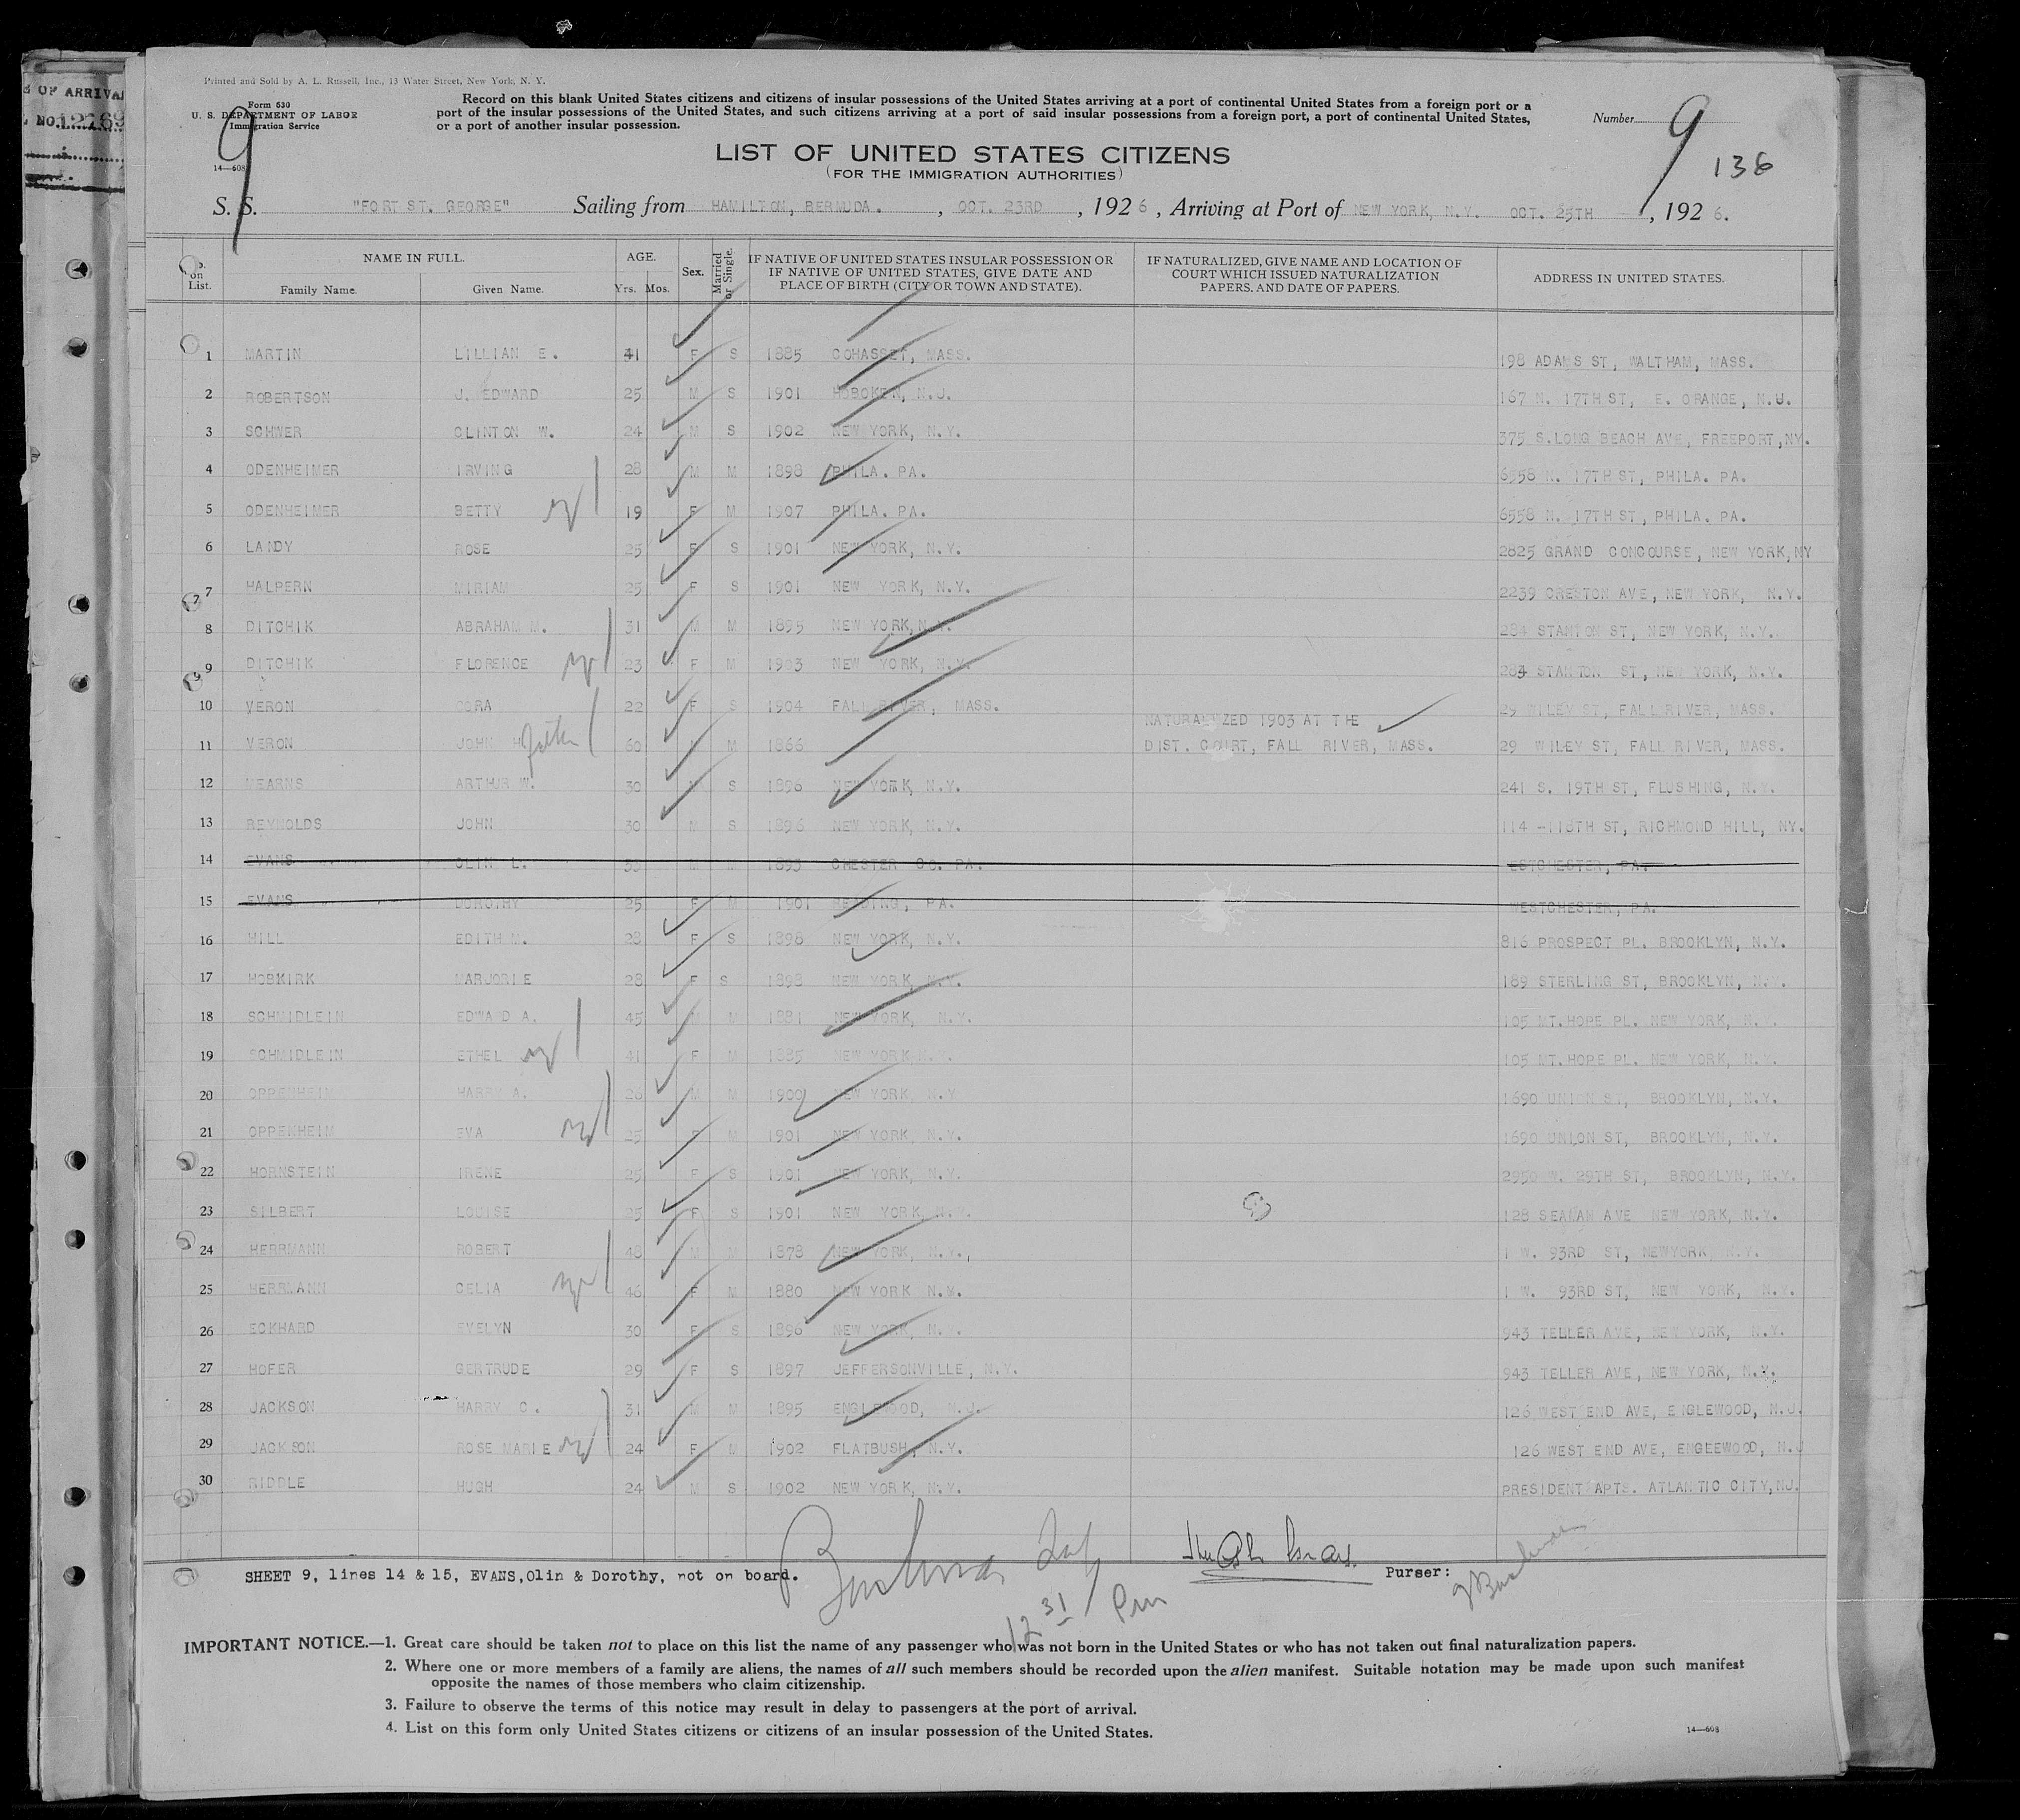 OF ARRIVAL
No. 12769
Printed and Sold by A. L. Russell, Inc., 13 Water Street, New York, N. Y.
Form 630
U. S. DEPARTMENT OF LABOR
Immigration Service
14—608
9
Record on this blank United States citizens and citizens of insular possessions of the United States arriving at a port of continental United States from a foreign port or a
port of the insular possessions of the United States, and such citizens arriving at a port of said insular possessions from a foreign port, a port of continental United States,
or a port of another insular possession.
Number 9
136
LIST OF UNITED STATES CITIZENS
(FOR THE IMMIGRATION AUTHORITIES)
S. S. "FORT ST. GEORGE" Sailing from HAMILTON, BERMUDA. , OCT. 23RD , 1926 , Arriving at Port of NEW YORK, N.Y. OCT. 25TH , 1926.
No. on List. NAME IN FULL. Family Name. Given Name. AGE. Yrs. Mos. Sex. Married or Single. IF NATIVE OF UNITED STATES INSULAR POSSESSION OR IF NATIVE OF UNITED STATES, GIVE DATE AND PLACE OF BIRTH (CITY OR TOWN AND STATE). IF NATURALIZED, GIVE NAME AND LOCATION OF COURT WHICH ISSUED NATURALIZATION PAPERS, AND DATE OF PAPERS. ADDRESS IN UNITED STATES.
1 MARTIN LILLIAN E. 41 F S 1885 COHASSET, MASS. 198 ADAMS ST, WALTHAM, MASS.
2 ROBERTSON J. EDWARD 25 M S 1901 HOBOKEN, N.J. 167 N. 17TH ST, E. ORANGE, N.J.
3 SCHWER CLINTON W. 24 M S 1902 NEW YORK, N.Y. 375 S.LONG BEACH AVE, FREEPORT,NY.
4 ODENHEIMER IRVING 28 M M 1898 PHILA. PA. 6558 N. 17TH ST, PHILA. PA.
5 ODENHEIMER BETTY 19 F M 1907 PHILA. PA. 6558 N. 17TH ST, PHILA. PA.
6 LANDY ROSE 25 F S 1901 NEW YORK, N.Y. 2825 GRAND CONCOURSE, NEW YORK,NY
7 HALPERN MIRIAM 25 F S 1901 NEW YORK, N.Y. 2239 CRESTON AVE, NEW YORK, N.Y.
8 DITCHIK ABRAHAM M. 31 M M 1895 NEW YORK,N.Y. 284 STANTON ST, NEW YORK, N.Y.
9 DITCHIK FLORENCE 23 F M 1903 NEW YORK, N.Y. 284 STANTON ST, NEW YORK, N.Y.
10 VERON CORA 22 F S 1904 FALL RIVER, MASS. 29 WILEY ST, FALL RIVER, MASS.
11 VERON JOHN H father 60 M M 1866 NATURALIZED 1903 AT THE DIST. COURT, FALL RIVER, MASS. 29 WILEY ST, FALL RIVER, MASS.
12 MEARNS ARTHUR W. 30 M S 1896 NEW YORK, N.Y. 241 S. 19TH ST, FLUSHING, N.Y.
13 REYNOLDS JOHN 30 M S 1896 NEW YORK, N.Y. 114 -118TH ST, RICHMOND HILL, NY.
14 EVANS OLIN L. 33 M M 1893 CHESTER CO. PA. WESTCHESTER, PA.
15 EVANS DOROTHY 25 F M 1901 READING, PA. WESTCHESTER, PA.
16 HILL EDITH M. 28 F S 1898 NEW YORK, N.Y. 816 PROSPECT PL. BROOKLYN, N.Y.
17 HOBKIRK MARJORIE 28 F S 1898 NEW YORK, N.Y. 189 STERLING ST, BROOKLYN, N.Y.
18 SCHMIDLEIN EDWARD A. 45 M M 1881 NEW YORK, N.Y. 105 MT.HOPE PL. NEW YORK, N.Y.
19 SCHMIDLEIN ETHEL 41 F M 1885 NEW YORK N.Y. 105 MT.HOPE PL. NEW YORK, N.Y.
20 OPPENHEIM HARRY A. 26 M M 1900 NEW YORK, N.Y 1690 UNION ST, BROOKLYN, N.Y.
21 OPPENHEIM EVA 25 F M 1901 NEW YORK, N.Y. 1690 UNION ST, BROOKLYN, N.Y.
22 HORNSTEIN IRENE 25 F S 1901 NEW YORK, N.Y. 2950 W. 29TH ST, BROOKLYN, N.Y.
23 SILBERT LOUISE 25 F S 1901 NEW YORK, N.Y. 128 SEAMAN AVE NEW YORK, N.Y.
24 HERRMANN ROBERT 48 M M 1878 NEW YORK, N.Y., 1 W. 93RD ST, NEWYORK, N.Y.
25 HERRMANN CELIA 46 F M 1880 NEW YORK N.Y. 1 W. 93RD ST, NEW YORK, N.Y.
26 ECKHARD EVELYN 30 F S 1896 NEW YORK, N.Y. 943 TELLER AVE, NEW YORK, N.Y.
27 HOFER GERTRUDE 29 F S 1897 JEFFERSONVILLE, N.Y. 943 TELLER AVE, NEW YORK, N.Y.
28 JACKSON HARRY C. 31 M M 1895 ENGLEWOOD, N.J. 126 WEST END AVE, ENGLEWOOD, N.J.
29 JACKSON ROSE MARIE 24 F M 1902 FLATBUSH, N.Y. 126 WEST END AVE, ENGLEWOOD, N.J
30 RIDDLE HUGH 24 M S 1902 NEW YORK, N.Y. PRESIDENT APTS. ATLANTIC CITY,NJ.
SHEET 9, lines 14 & 15, EVANS,Olin & Dorothy, not on board.
Purser:
12 31 Pm
IMPORTANT NOTICE.—1. Great care should be taken not to place on this list the name of any passenger who was not born in the United States or who has not taken out final naturalization papers.
2. Where one or more members of a family are aliens, the names of all such members should be recorded upon the alien manifest. Suitable notation may be made upon such manifest
opposite the names of those members who claim citizenship.
3. Failure to observe the terms of this notice may result in delay to passengers at the port of arrival.
4. List on this form only United States citizens or citizens of an insular possession of the United States.
14—608